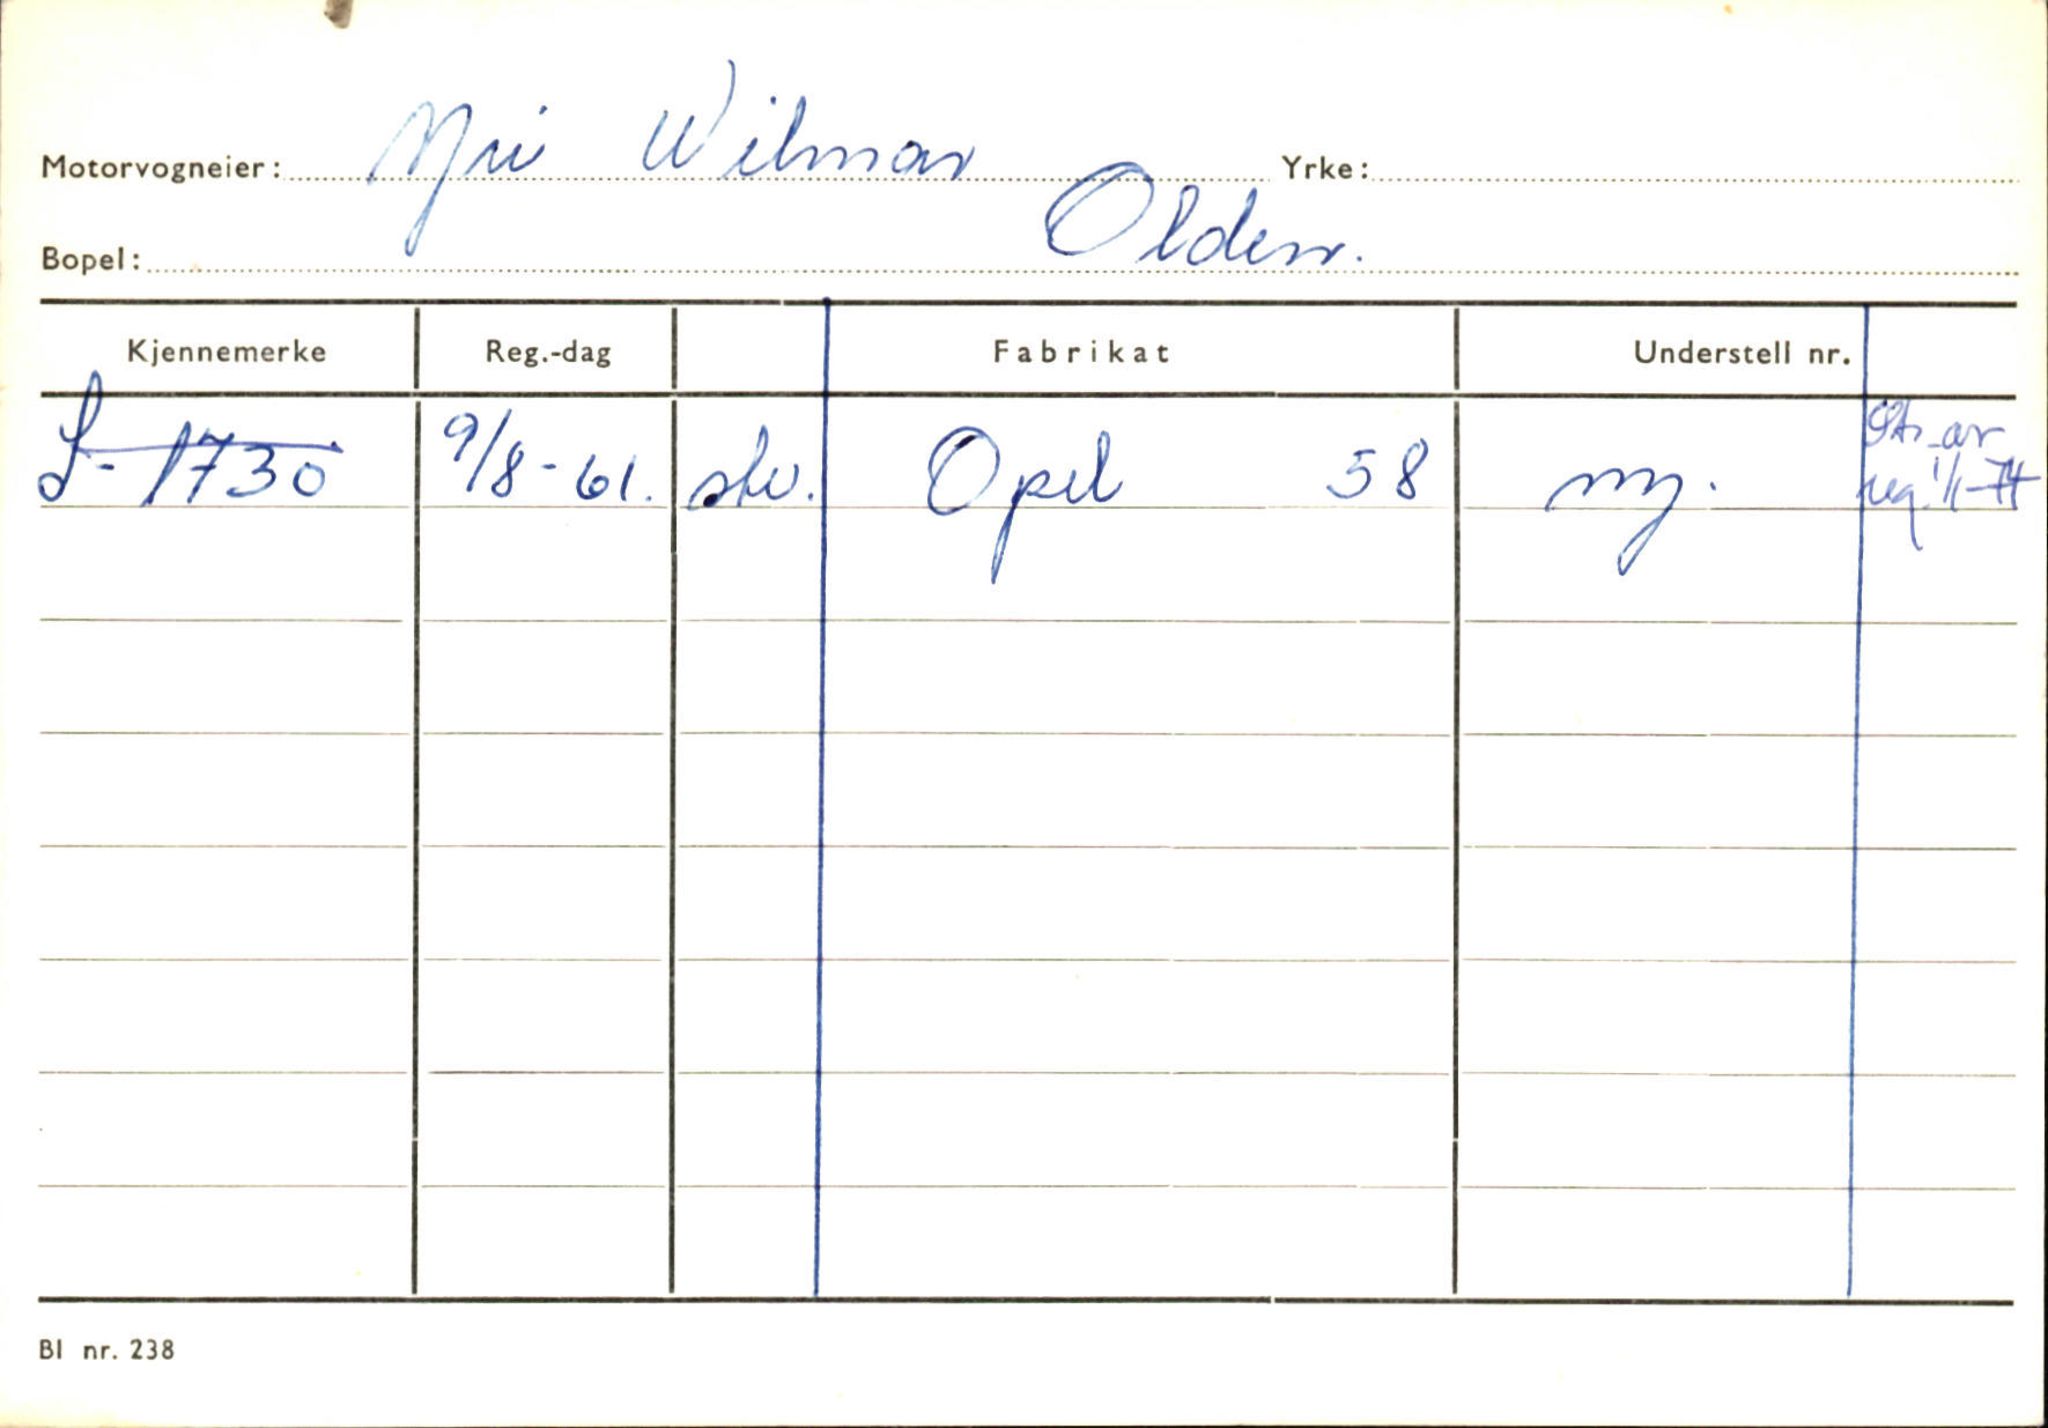 Motorvogneier: Myri Wilmar Yrke:
Bopel: Olden.
Kjennemerke Reg.-dag Fabrikat Understell nr.
S-1730 9/8-61. stv. Opel 58 ny. Str. av
reg. 1/1-74
Bl nr. 238